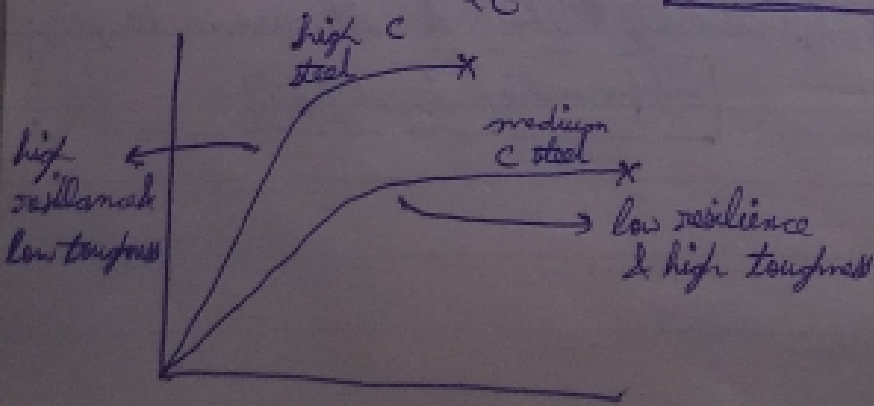 high C
steel
medium
C steel
high
resillance &
low toughness
low resilience
& high toughness